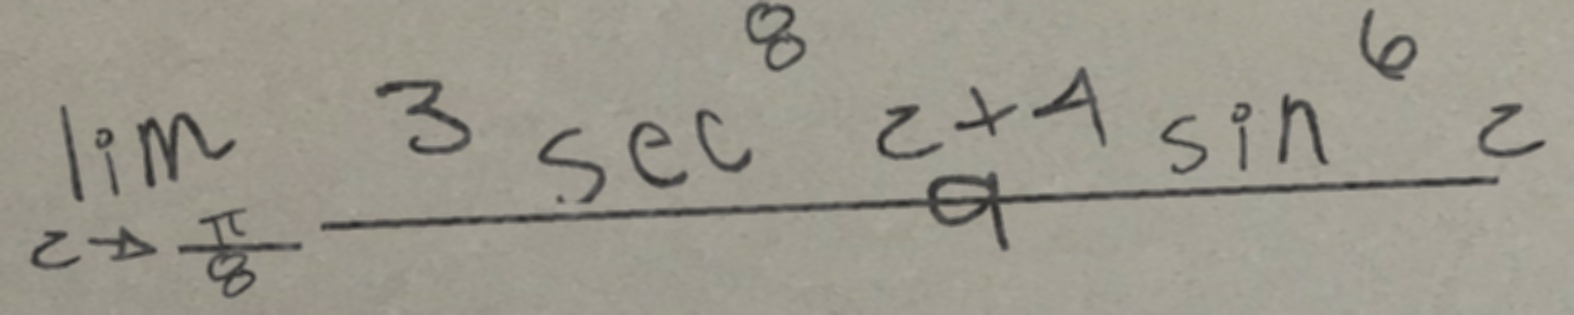 lim z→π/8 (3 sec^8 z + 4 sin^6 z)/9